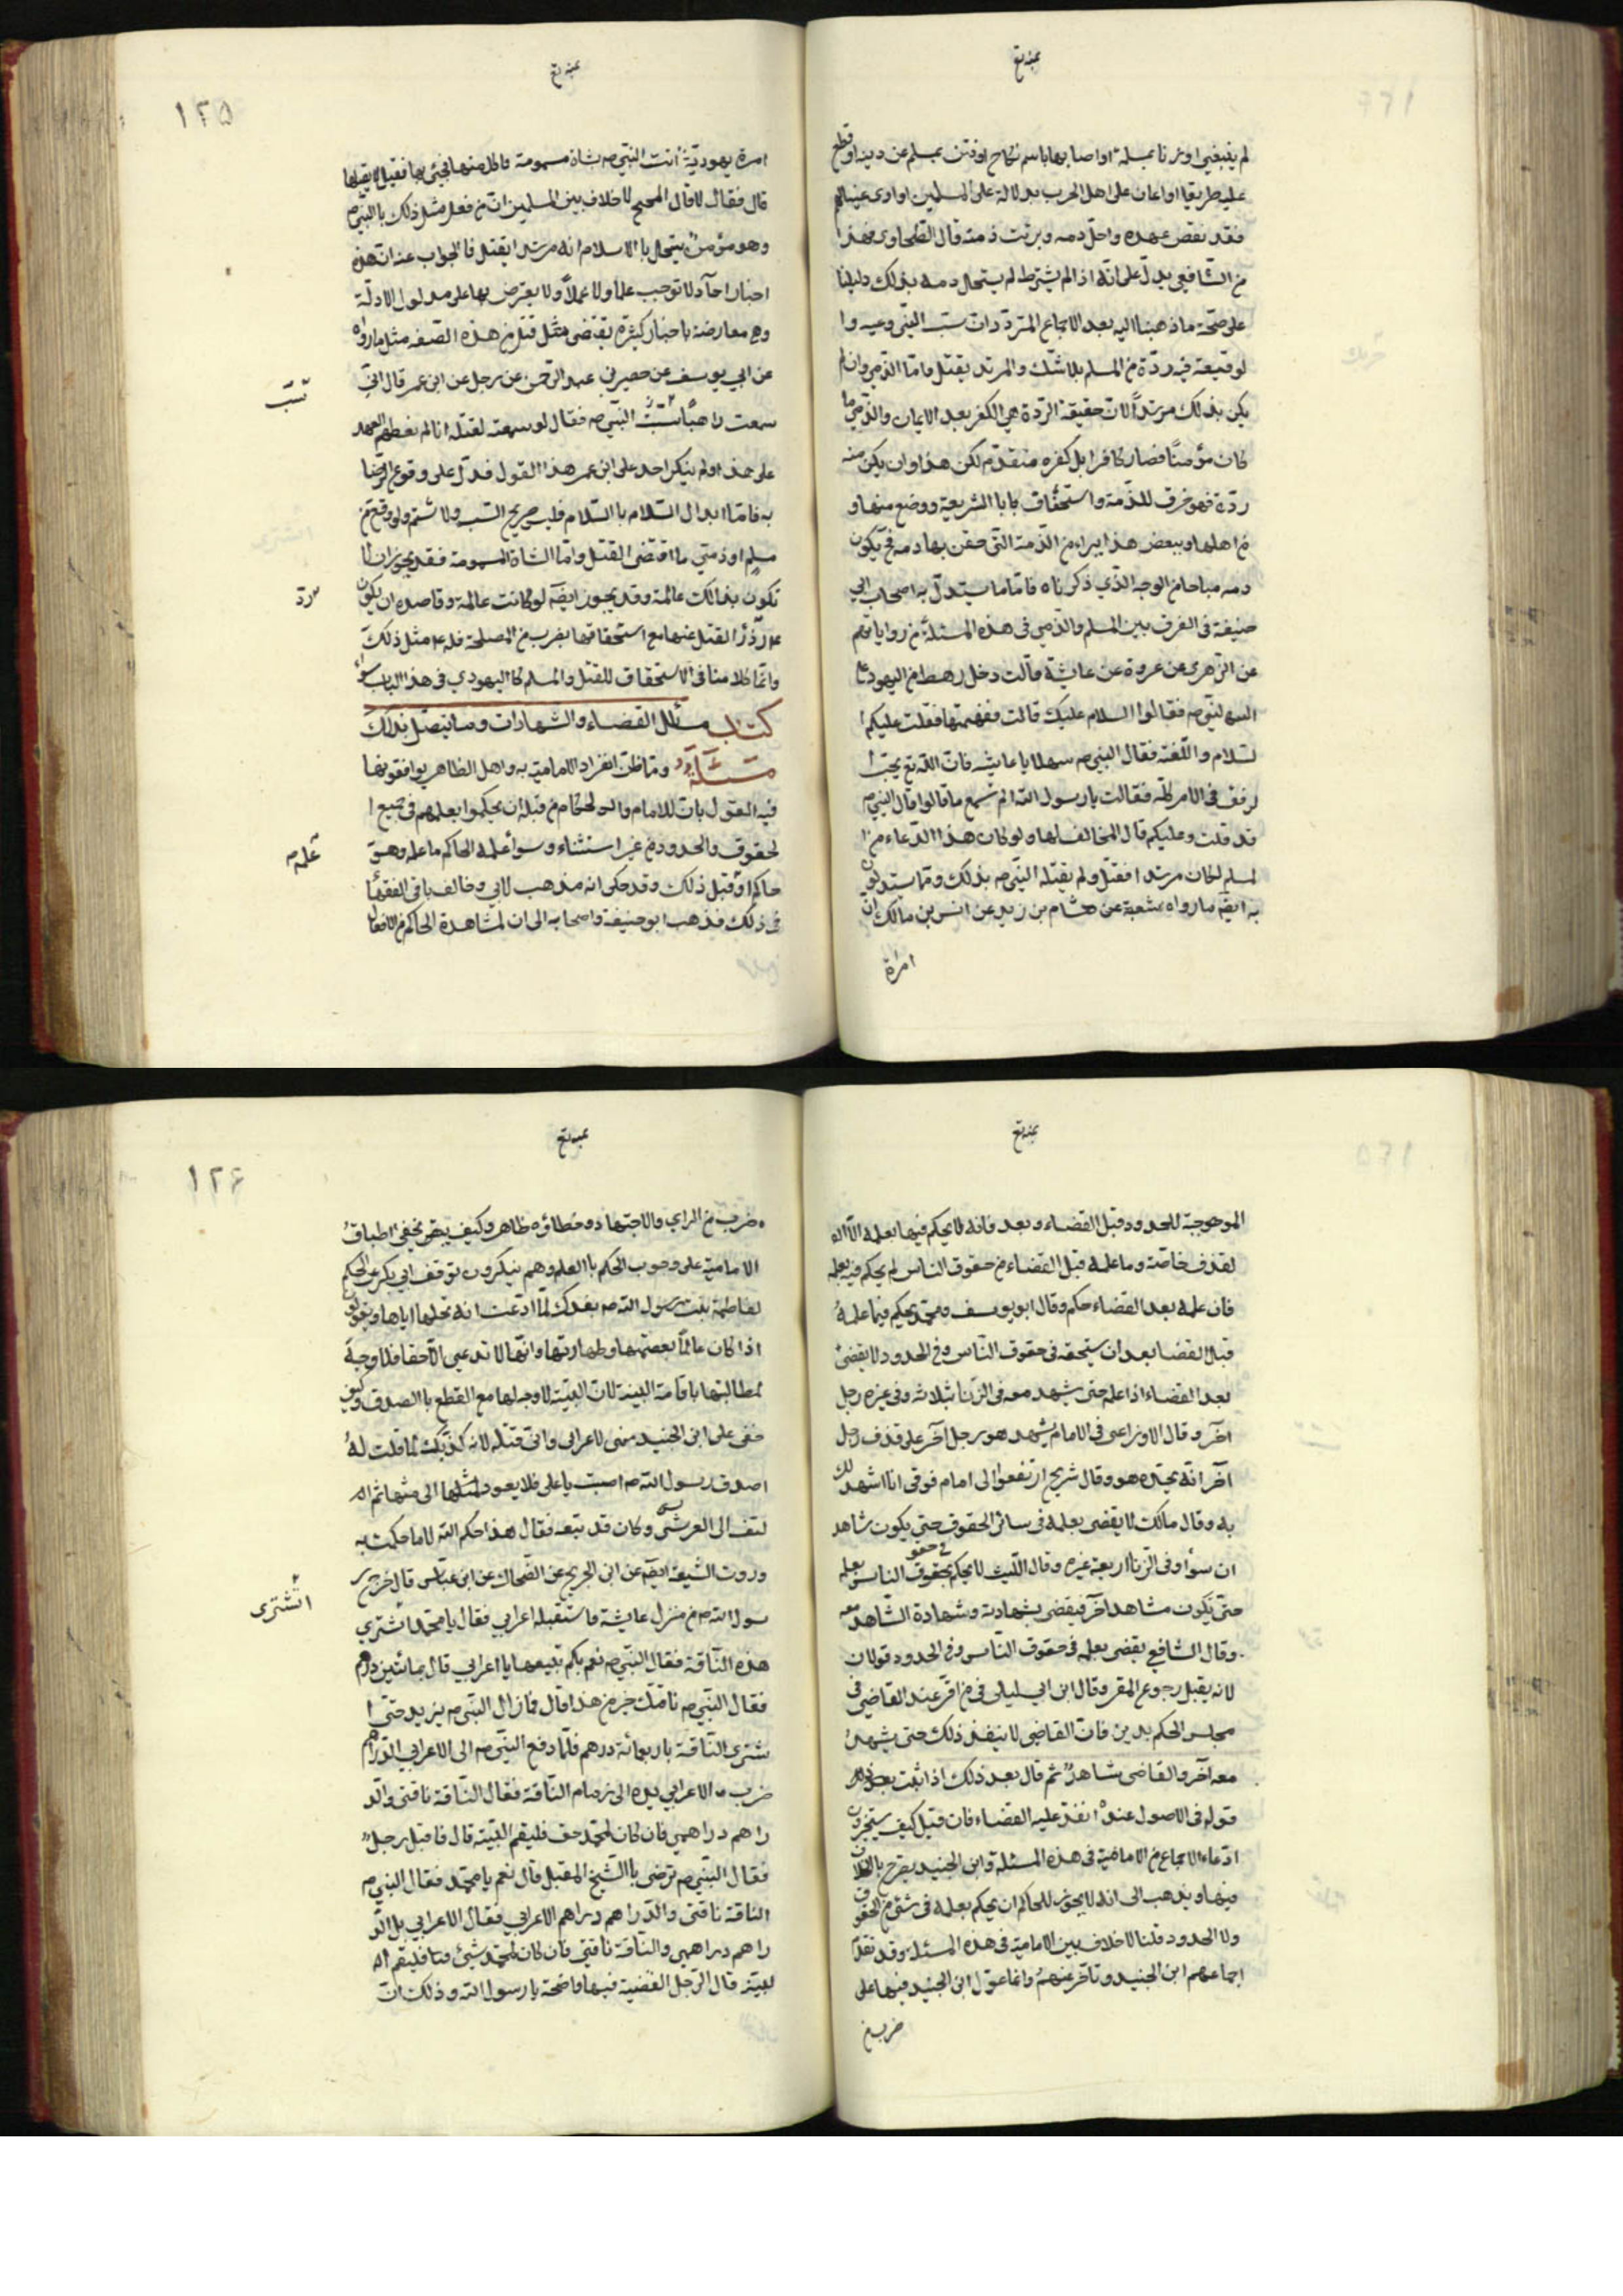 لم ينبغي او زنا بمسلمة او اصابها باسم نكاح او فتن بمسلم عن دينه او قطع
عليه طريقا او اعان على اهل الحرب بدلالة على المسلمين او اوى عينا لهم
فقد نقض عهده واحل دمه وبرئت ذمته قال الطحاوي فهذا
من الشافعي يدل على انه اذا لم يشترط لم يستحل دمه بذلك دليلنا
على صحة ما ذهبنا اليه بعد الاجماع المتردد ان سب النبي وعيبه وا
لوقيعة فيه ردة من المسلم بلا شك والمرتد يقتل فاما الذمي وان لم
يكن بذلك مرتدا لان حقيقة الردة هي الكفر بعد الايمان والذمي ما
كان مؤمنا فصار كافرا بل كفره متقدم لكن هذا وان يكن منه
ردة فهو خرق للذمة واستحقاق بابا الشريعة ووضع منها و
من اهلها وببعض هذا يبراء من الذمة التي حقن بها دمه فح يكون
دمه مباحا من الوجه الذي ذكرناه فاما ما يستدل به اصحاب ابي
حنيفة في الفرق بين المسلم والذمي في هذه المسئلة من رواياتهم
عن الزهري عن عروة عن عايشة قالت دخل رهط من اليهود
النبي ص فقالوا السلام عليك قالت ففهمتها فقلت عليكم ا
لسلام واللعنة فقال النبي ص مهلا يا عايشه فان الله تع يحب ا
لرفق في الامر كله فقالت يا رسول الله الم تسمع ما قالوا قال النبي ص
قد قلت وعليكم قال المخالف لها ولو كان هذا الدعاء من ا
لمسلم لكان مرتدا فقتل ولم يقتله النبي ص بذلك ومما يستدلون
به ايضا ما رواه شعبة عن هشام بن زيد عن انس بن مالك ان
امراة
١٢٥
امرة يهودية اتت النبي ص بشاة مسمومة فاكل منها فجيئ بها فقيل لا يقتلها
قال فقال لا قال المحتج لا خلاف بين المسلمين ان من فعل مثل ذلك بالنبي ص
وهو مؤمن ينتحل بالاسلام انه مرتد ا يقتل فالجواب عنه ان هذه
اخبار احاد لا توجب علما ولا عملا ولا يعترض بها على مدلول الادلة
وهي معارضة باخبار كثيرة يقتضي مثل قتل من هذه الصفة مثل ما رواه
عن ابي يوسف عن حصير بن عبد الرحمن عن رجل عن ابن عمر قال اني
سمعت راهبا سبت النبي ص فقال لو سمعته لقتله انا لم نعطهم العهد
على هذا ولم ينكر احد على ابن عمر هذا القول فدل على وقوع الرضا
به فاما ابدال السلام با السلام فليس صريح السب ولا شتم ولو وقع من
مسلم او ذمي ما اقتضى القتل واما الشاة المسمومة فقد يجوز ان لا
تكون بذالك عالمة وقد يجوز ايضه لو كانت عالمة وقاصدة ان يكون
ع رد القتل عنها مع استحقاقها بضرب من المصلحة فله ع مثل ذلك
وانما كلامنا في الاستحقاق للقتل والمسلم كاليهودي في هذا الباب سواء
كتاب مسائل القضاء والشهادات وما يتصل بذلك
مسئلة ومما ظن انفراد الامامية به واهل الظاهر يوافقونها
فيه القول بان للامام والحكام من قبله ان يحكموا بعلمهم في جميع ا
لحقوق والحدود من غير استثناء وسواء علم الحاكم ما علمه وهو
حاكم او قبل ذلك وقد حكى انه مذهب لابي وخالف باقي الفقها
في ذلك فذهب ابو حنيفة واصحابه الى ان لمشاهدة الحاكم من الافعال
سب
رد
علمه
الموجبة للحدود قبل القضاء وبعد فانه لا يحكم فيها بعلمه الا ا
لقذف خاصة وما علمه قبل القضاء من حقوق الناس لم يحكم فيه بعلمه
فان علمه بعد القضاء حكم وقال ابو يوسف ومحمد يحكم فيما علمه
قبل القضا بعد ان يستحقه في حقوق الناس وفي الحدود لا يقضى
بعد القضاء اذا علمه حتى يشهد معه في الزنا ثلاثه وفي غيره رجل
آخر وقال الاوزاعي في الامام يشهد هو رجل آخر على قذف رجل
آخر انه يحده هو وقال شريح ارتفعوا الى امام فوقي انا اشهد لك
به وقال مالك لا يقضى بعلمه في سائر الحقوق حتى يكون شاهد
ان سوا وفي الزنا اربعة غيره وقال الليث لا يحكم بحقوق الناس بعلمه
حتى يكون شاهدا آخر فيقضى بشهادته وشهادة الشاهد معه
وقال الشافعي يقضى بعلمه في حقوق الناس وفي الحدود قولان
لانه يقبل رجوع المقر وقال ابن ابي ليلى في من اقر عند القاضي في
مجلس الحكم بدين فان القاضي لا ينفذ ذلك حتى يشهد
معه آخر والقاضي شاهد ثم قال بعد ذلك اذا ثبت
قوله في الاصول عنده انفذ عليه القضاء فان قيل كيف يستجيزون
ادعاء الاجماع من الامامية في هذه المسئلة وابن الجنيد يصرح بالخلاف
فيها ويذهب الى انه لا يجوز للحاكم ان يحكم بعلمه في شئ من الحقوق
ولا الحدود قلنا لا خلاف بين الامامية في هذه المسئلة وقد تقدم
اجماعهم ابن الجنيد وتاخر عنهم وانما عول ابن الجنيد فيها على
ضرب من
١٢٦
ضرب من الراي والاجتهاد وخطاؤه ظاهر وكيف يخفى اطباق
الامامية على وجوب الحكم با العلم وهم ينكرون توقف ابي بكر عن الحكم
لفاطمة بنت رسول الله ص بفدك لما ادعت انه نحلها اياها ويقولون
اذا كان عالما بعصمتها وطهارتها وانها لا تدعي الا حقا فلا وجه
لمطالبتها باقامة البينة لان البينة لا وجه لها مع القطع با الصدق وكيف
خفى على ابن الجنيد
اصدق رسول الله ص اصبت يا علي فلا يعود لمثلها الى مثلها ثم ا
لتفت الى القرشي وكان قد تبعه فقال هذا حكم الله لا ما حكمت به
وروت الشيعة ايضه عن ابن الجريح عن الضحاك عن ابن عباس قال خرج ر
سول الله ص من منزل عايشة فاستقبله اعرابي فقال يا محمد اتشتري
هذه الناقة فقال النبي ص نعم بكم تبيعها يا اعرابي قال بمائتين درهم
فقال النبي ص ناقتك خير من هذا قال فما زال النبي ص يزيد حتى ا
شترى الناقة باربعمائة درهم فلما دفع النبي ص الى الاعرابي الدراهم
ضرب الاعرابي يده الى زمام الناقة فقال الناقة ناقتي والد
راهم دراهمي فان كان لمحمد حق فليقم البينة قال فاقبل رجل
فقال النبي ص ترضى با الشيخ المقبل قال نعم يا محمد فقال النبي ص
الناقة ناقتي والدراهم دراهم الاعرابي فقال الاعرابي بل الد
راهم دراهمي والناقة ناقتي فان كان لمحمد شئ فليقم ا
لبينة قال الرجل القضية فيها واضحة يا رسول الله وذلك ان
اتشترى